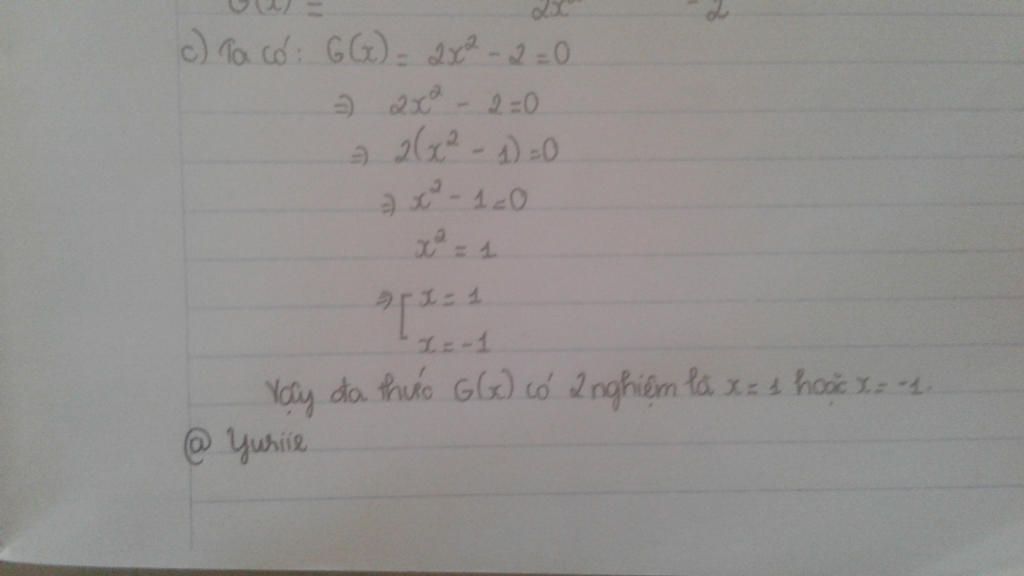 G(x) = 2x² - 2
c) Ta có: G(x) = 2x² - 2 = 0
⇒ 2x² - 2 = 0
⇒ 2(x² - 1) = 0
⇒ x² - 1 = 0
x² = 1
⇒ [ x = 1
x = -1
Vậy đa thức G(x) có 2 nghiệm là x = 1 hoặc x = -1.
@ Yuriie